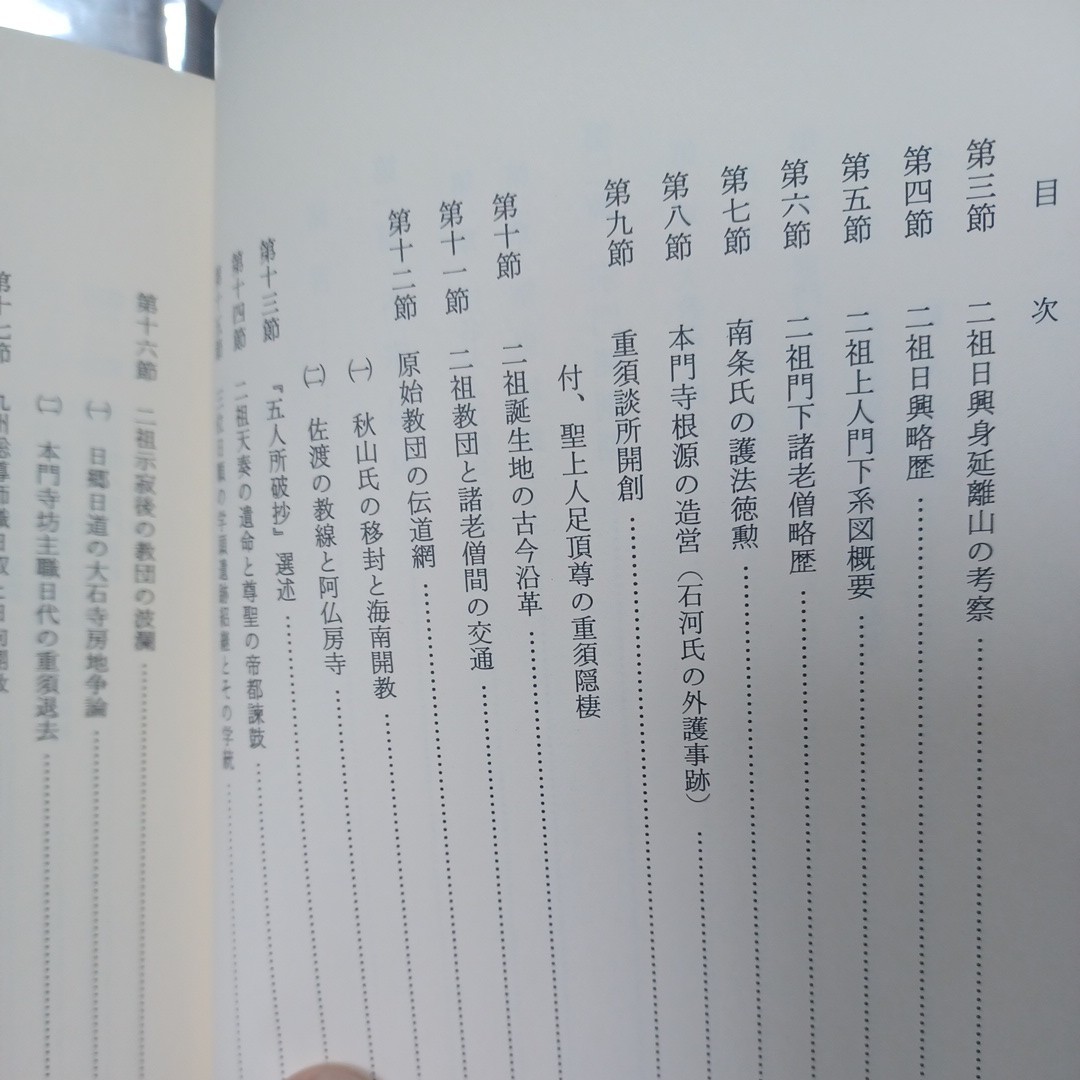 目次
第三節 二祖日興身延離山の考察
第四節 二祖日興略歴
第五節 二祖上人門下系図概要
第六節 二祖門下諸老僧略歴
第七節 南条氏の護法徳勲
第八節 本門寺根源の造営（石河氏の外護事跡）
第九節 重須談所開創
付、聖上人足頂尊の重須隠棲
第十節 二祖誕生地の古今沿革
第十一節 二祖教団と諸老僧間の交通
第十二節 原始教団の伝道網
㈠ 秋山氏の移封と海南開教
㈡ 佐渡の教線と阿仏房寺
第十三節 『五人所破抄』選述
第十四節 二祖天奏の遺命と尊聖の帝都諫鼓
の学頭
とその学統
第十六節 二祖示寂後の教団の波瀾
㈠ 日郷日道の大石寺房地争論
㈡ 本門寺坊主職日代の重須退去
第十七節 九州総導師職日